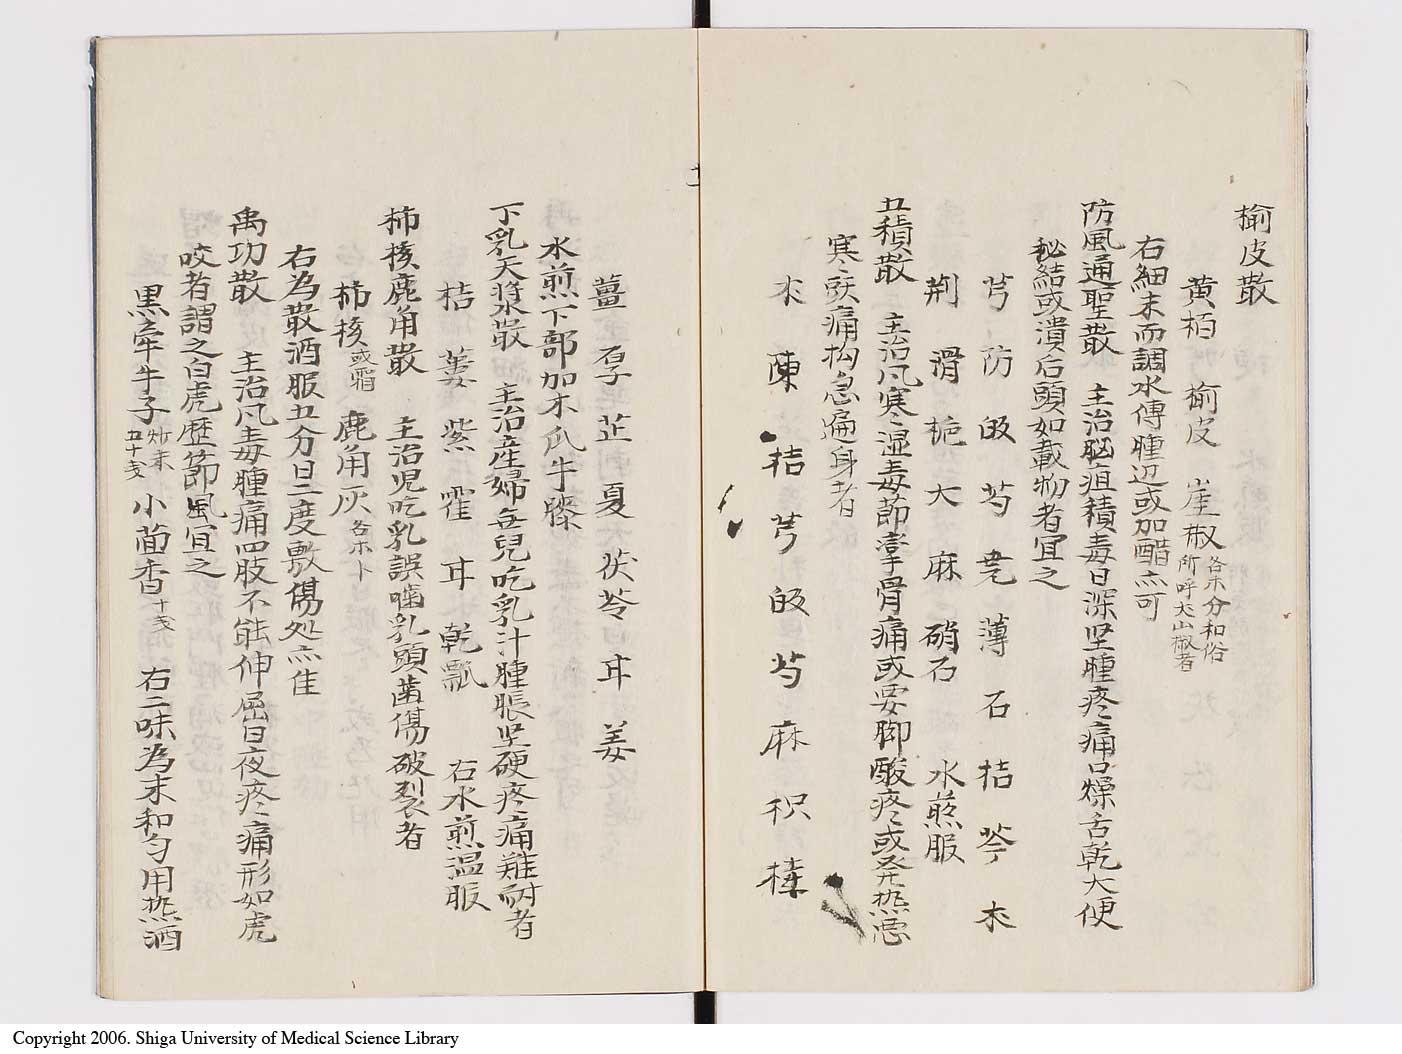 楡皮散
黄栢 楡皮 崖椒 各末分和俗所呼犬山椒者
右細末而調水傅腫辺或加醋亦可
防風通聖散 主治脳疽積毒日深坚腫疼痛口燥舌乾大便
秘結或潰后頭如載物者宜之
芎 防 皈 芍 尭 薄 石 桔 芩 朮
荆 滑 栀 大 麻 硝石 水煎服
五積散 主治凡寒湿毒節挛骨痛或要脚酸疼或発熱悪
寒〻頭痛拘急遍身者
朮 陳 桔 芎 皈 芍 麻 枳 桂
薑 厚 芷 夏 茯苓 甘 姜
水煎下部加木瓜牛膝
下乳天漿散 主治産婦無兒吃乳汁腫脹坚硬疼痛難耐者
桔 蔞 紫 霍 甘 乾瓢 右水煎温服
柿核鹿角散 主治児吃乳誤噛乳頭歯傷破裂者
柿核 或霜 鹿角灰 各木卜
右為散酒服五分日二度敷傷処亦佳
禹功散 主治凡毒腫痛四肢不能伸屈日夜疼痛形如虎
咬者謂之白虎歴節風宜之
黒牽牛子 炒末五十戔 小茴香 十戔 右二味為末和匀用热酒
Copyright 2006. Shiga University of Medical Science Library